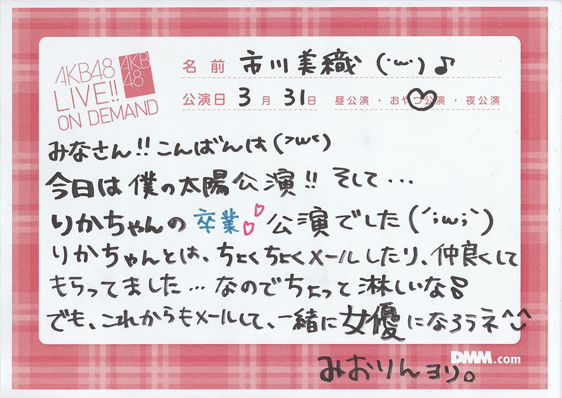 AKB48
LIVE!!
ON DEMAND
AKB
48
名前 市川美織 (･ω･)♪
公演日 3月31日 昼公演・おやつ公演・夜公演
みなさん!!こんばんは(>ω<)
今日は僕の太陽公演!!そして…
りかちゃんの卒業公演でした(´;ω;`)
りかちゃんとは、ちょくちょくメールしたり、仲良くして
もらってました…なのでちょっと淋しいな
でも、これからもメールして、一緒に女優になろうネ^^
みおりんヨリ。
DMM.com